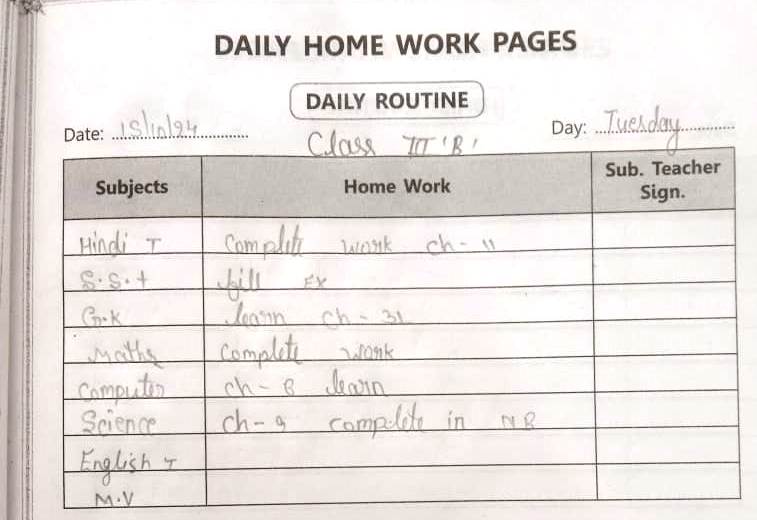 DAILY HOME WORK PAGES
DAILY ROUTINE
Date: 15/10/24 Day: Tuesday
Class III 'B'
Subjects Home Work Sub. Teacher Sign.
Hindi I Complete work ch-11
S.S.t fill EX
G.K learn ch-31
Maths Complete work
Computer ch-6 learn
Science ch-9 complete in NB
English I
M.V